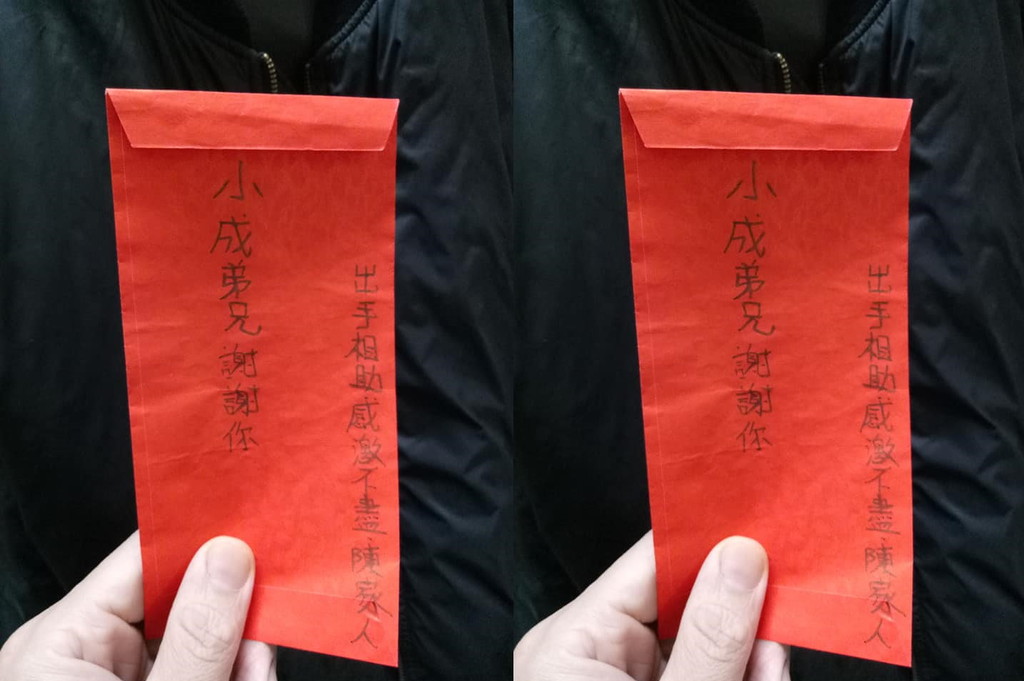 小成弟兄謝謝你
出手相助感激不盡,陳家人
小成弟兄謝謝你
出手相助感激不盡,陳家人